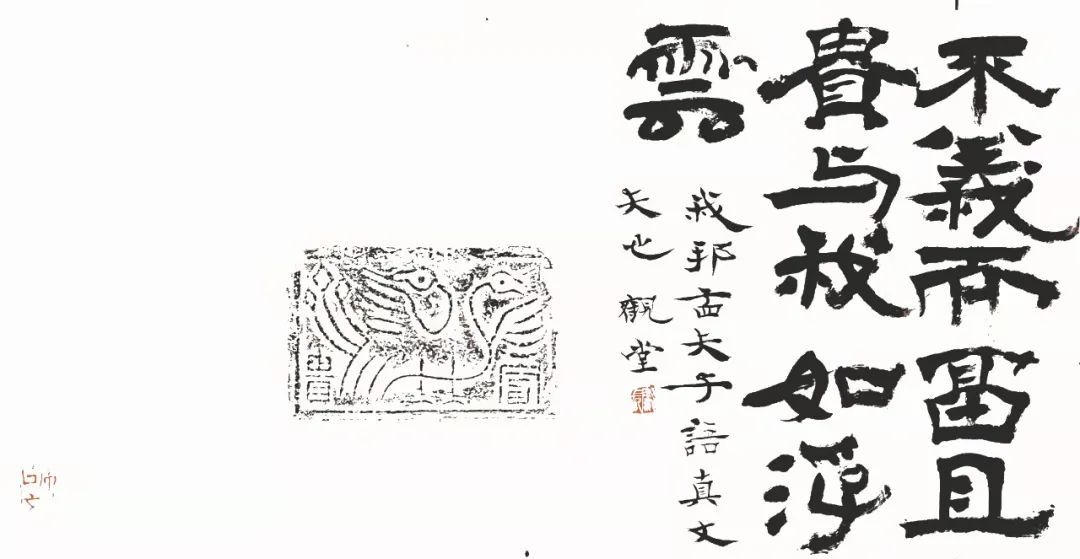 不義而富且
貴与我如浮
雲
我邦夫子語真丈
夫也 觀堂